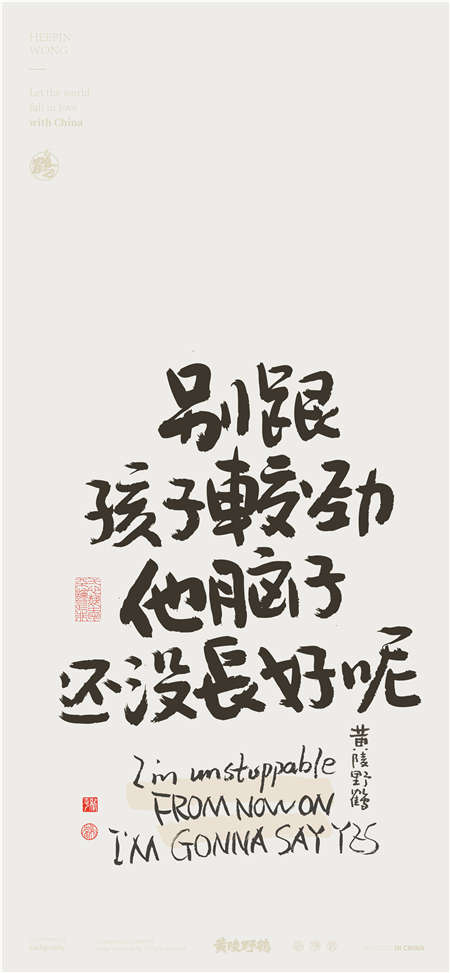 HEEPIN
WONG
Let the world
fall in love
with China
鹤
别跟
孩子較劲
他脑子
还没長好呢
黄陵野鹤
I'm unstoppable
FROM NOW ON
I'M GONNA SAY YES
黄陵野鹤
IN CHINA